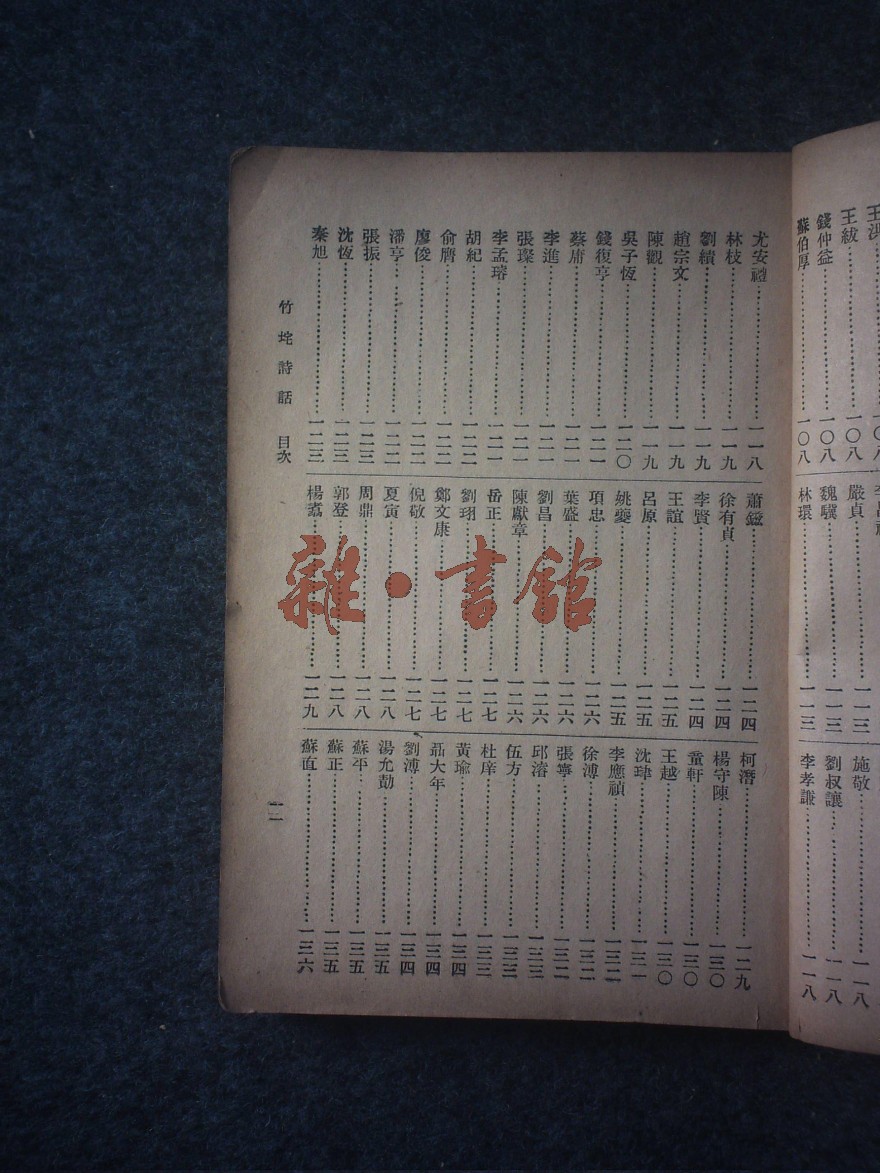 王紱……一〇八
錢仲益……一〇八
蘇伯厚……一〇八
嚴貞……一一三
魏驥……一一三
林環……一一三
施敬……一一八
劉叔讓……一一八
李孝謙……一一八
尤安禮……一一八
林枝……一一九
劉績……一一九
趙宗文……一一九
陳觀……一一九
吳子恆……一二〇
錢復亨……一二一
蔡庸……一二一
李進……一二一
張璨……一二一
李孟璿……一二一
胡紀……一二二
俞膺……一二二
廖俊……一二二
潘亨……一二二
張振……一二三
沈恆……一二三
秦旭……一二三
蕭鎡……一二四
徐有貞……一二四
李賢……一二四
王誼……一二五
呂原……一二五
姚夔……一二五
項忠……一二六
葉盛……一二六
劉昌……一二六
陳獻章……一二六
岳正……一二七
劉珝……一二七
鄭文康……一二七
倪敬……一二七
夏寅……一二八
周鼎……一二八
郭登……一二八
楊……一二九
柯潛……一二九
楊守陳……一三〇
童軒……一三〇
王越……一三〇
沈瑋……一三一
李應禎……一三二
徐溥……一三二
張寧……一三二
邱濬……一三三
伍方……一三三
杜庠……一三三
黃瑜……一三四
聶大年……一三四
劉溥……一三四
湯允勣……一三五
蘇平……一三五
蘇正……一三五
蘇直……一三六
竹垞詩話 目次
一一
雜·書館